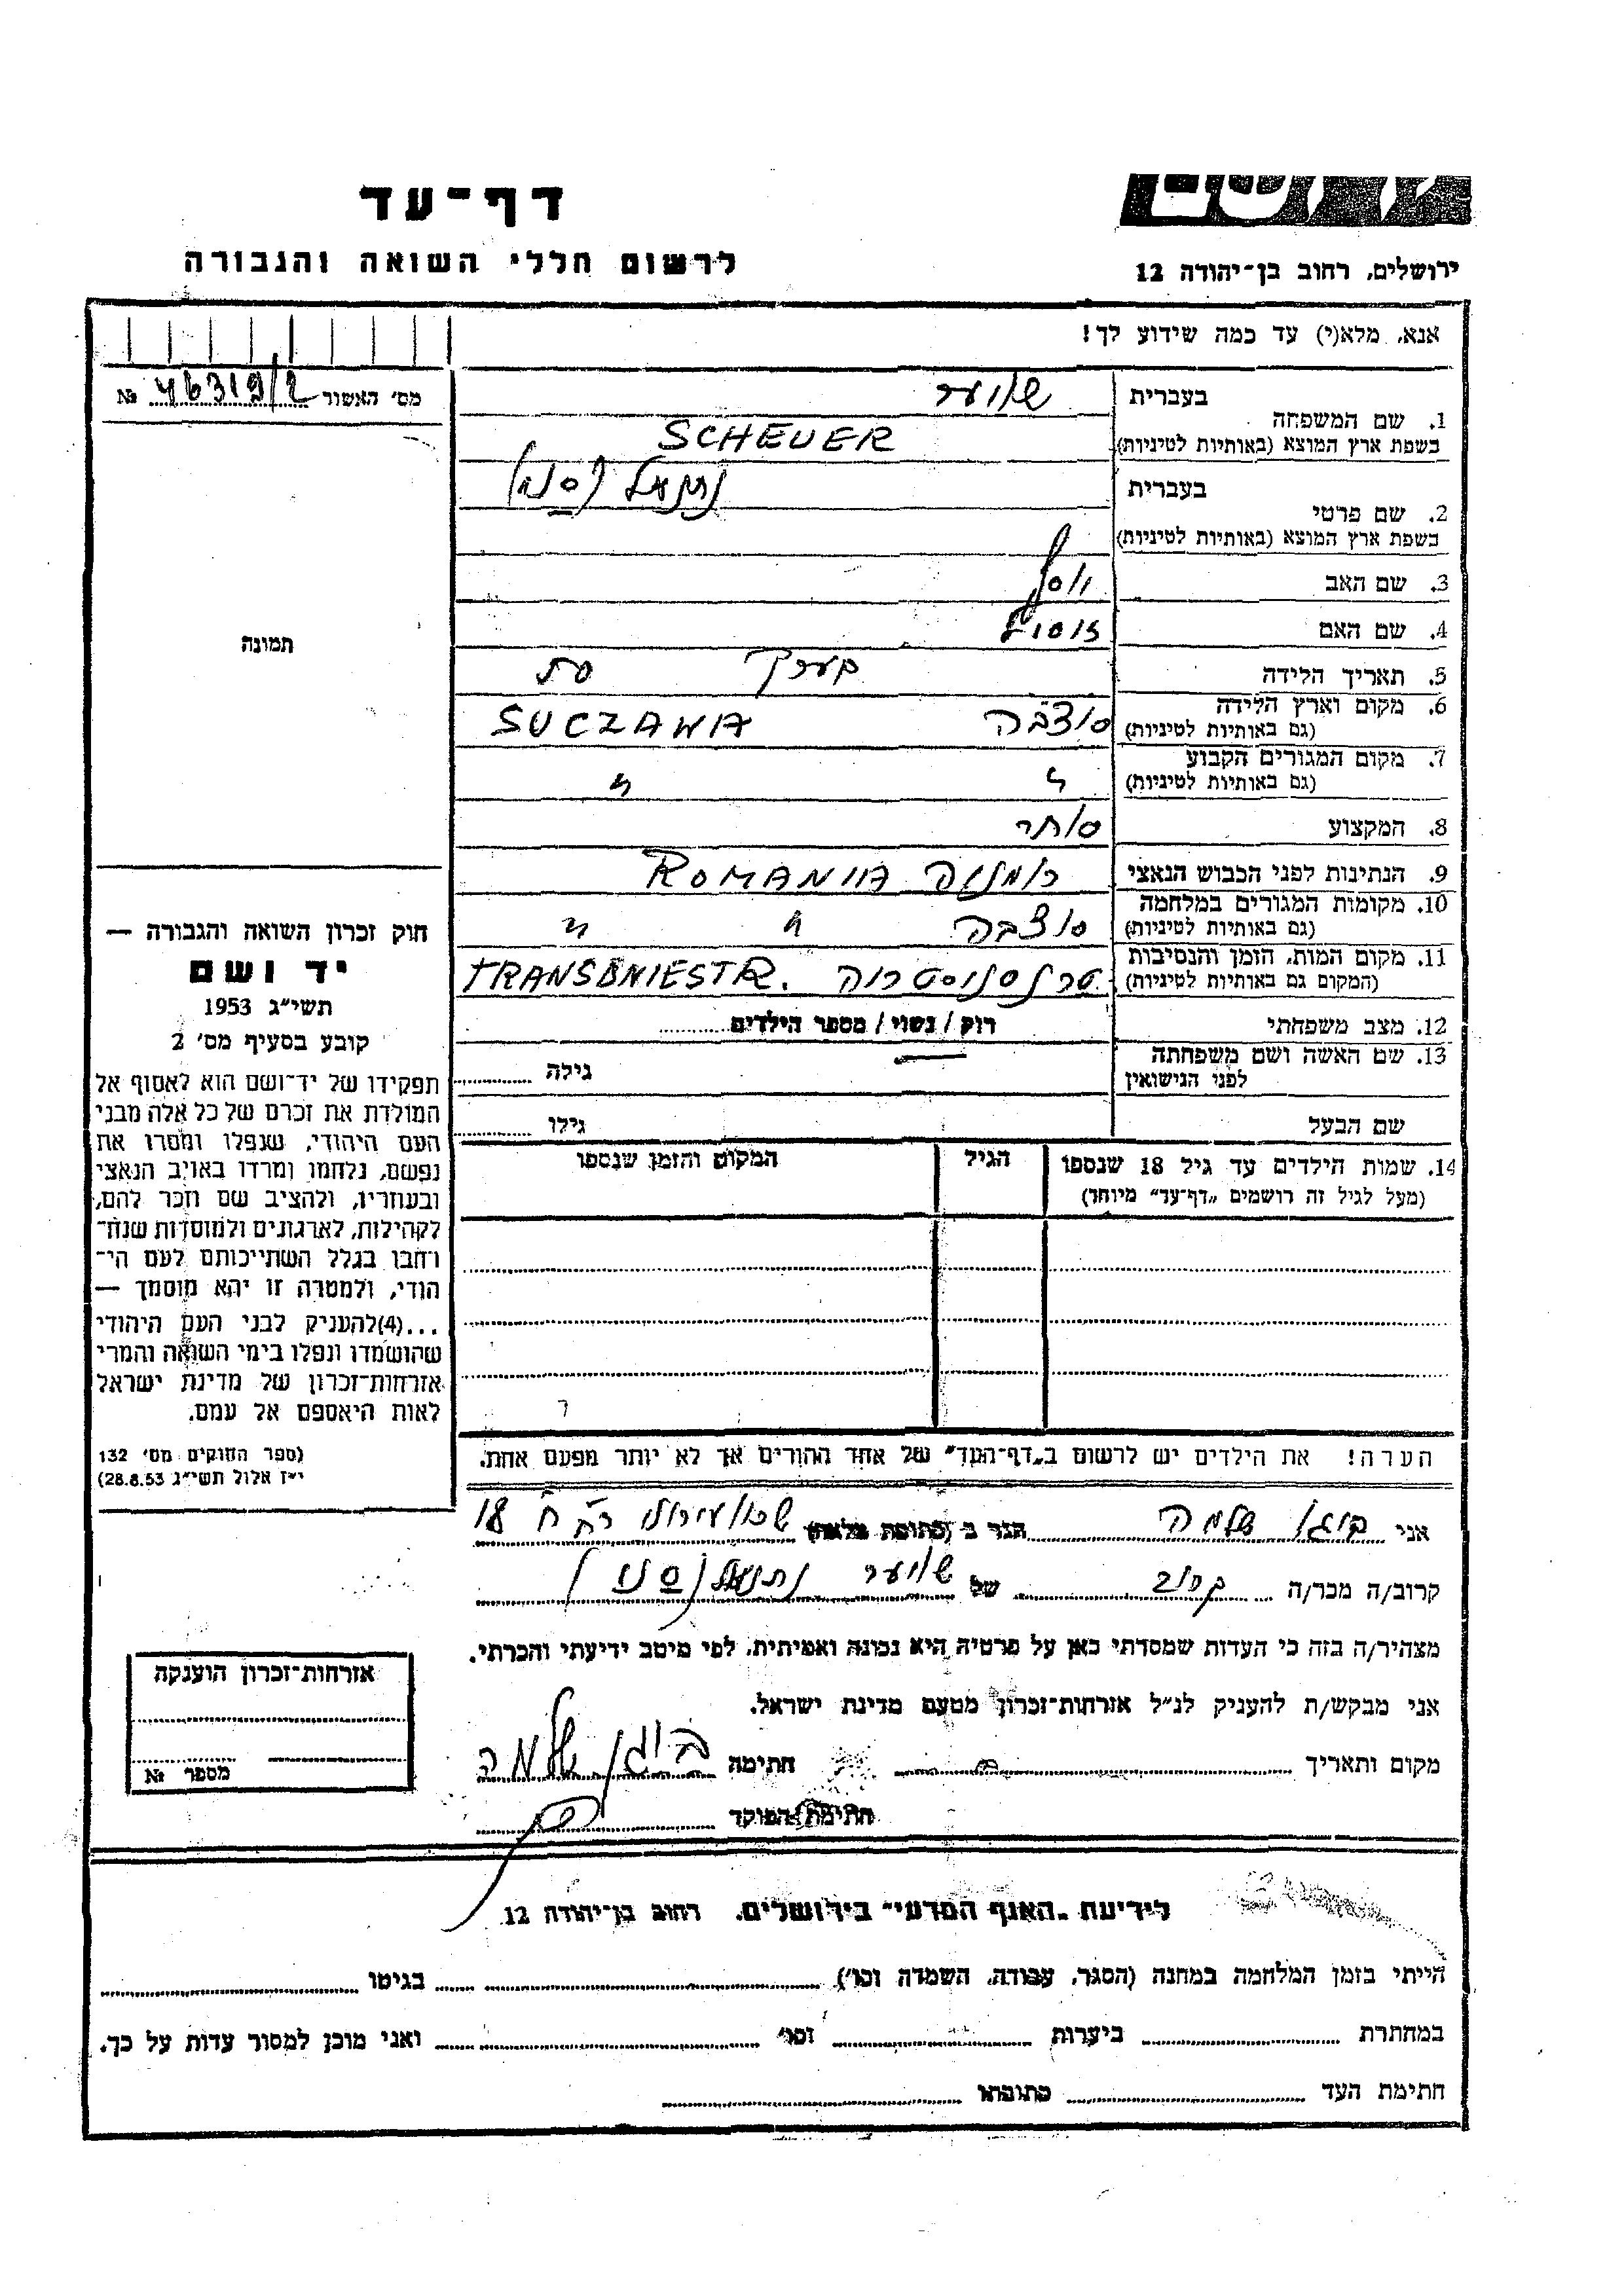 דף-עד
לרשום חללי השואה והגבורה
ירושלים, רחוב בן-יהודה 12
אנא, מלא(י) עד כמה שידוע לך!
מס' האשור 46319/2 №
תמונה
חוק זכרון השואה והגבורה —
יד ושם
תשי"ג 1953
קובע בסעיף מס' 2
תפקידו של יד-ושם הוא לאסוף אל
המולדת את זכרם של כל אלה מבני
העם היהודי, שנפלו ומסרו את
נפשם, נלחמו ומרדו באויב הנאצי
ובעוזריו, ולהציב שם וזכר להם,
לקהילות, לארגונים ולמוסדות שנח-
רחבו בגלל השתייכותם לעם הי-
הודי, ולמטרה זו יהא מוסמך —
...(4)להעניק לבני העם היהודי
שהושמדו ונפלו בימי השואה והמרי
אזרחות-זכרון של מדינת ישראל
לאות היאספם אל עמם.
(ספר החוקים מס' 132
י"ז אלול תשי"ג 28.8.53)
בעברית שויער
1. שם המשפחה
בשפת ארץ המוצא (באותיות לטיניות) SCHEUER
בעברית נתנאל
2. שם פרטי
בשפת ארץ המוצא (באותיות לטיניות)
3. שם האב יוסף
4. שם האם
5. תאריך הלידה בערך
6. מקום וארץ הלידה סוצבה SUCZAWA
(גם באותיות לטיניות)
7. מקום המגורים הקבוע " "
(גם באותיות לטיניות)
8. המקצוע סוחר
9. הנתינות לפני הכבוש הנאצי רומניה ROMANIA
10. מקומות המגורים במלחמה סוצבה " "
(גם באותיות לטיניות)
11. מקום המות, הזמן והנסיבות טרנסניסטריה TRANSDNIESTR.
(המקום גם באותיות לטיניות)
12. מצב משפחתי רווק / נשוי / מספר הילדים
13. שם האשה ושם משפחתה
לפני הנישואין גילה
שם הבעל גילו
14. שמות הילדים עד גיל 18 שנספו הגיל המקום והזמן שנספו
(מעל לגיל זה רושמים "דף-עד" מיוחד)
הערה! את הילדים יש לרשום ב"דף-העד" של אחד ההורים אך לא יותר מפעם אחת.
אני שלמה הגר ב (כתובת מלאה) 18
קרוב/ה מכר/ה קרוב של שויער נתנאל
מצהיר/ה בזה כי העדות שמסרתי כאן על פרטיה היא נכונה ואמיתית, לפי מיטב ידיעתי והכרתי.
אני מבקש/ת להעניק לנ"ל אזרחות-זכרון מטעם מדינת ישראל.
מקום ותאריך חתימה שלמה
חתימת הפוקד
אזרחות-זכרון הוענקה
מספר №
לידיעת "האגף המדעי" בירושלים, רחוב בן-יהודה 12
הייתי בזמן המלחמה במחנה (הסגר, עבודה, השמדה וכו') בגיטו
במחתרת ביערות וכו' ואני מוכן למסור עדות על כך.
חתימת העד כתובתו